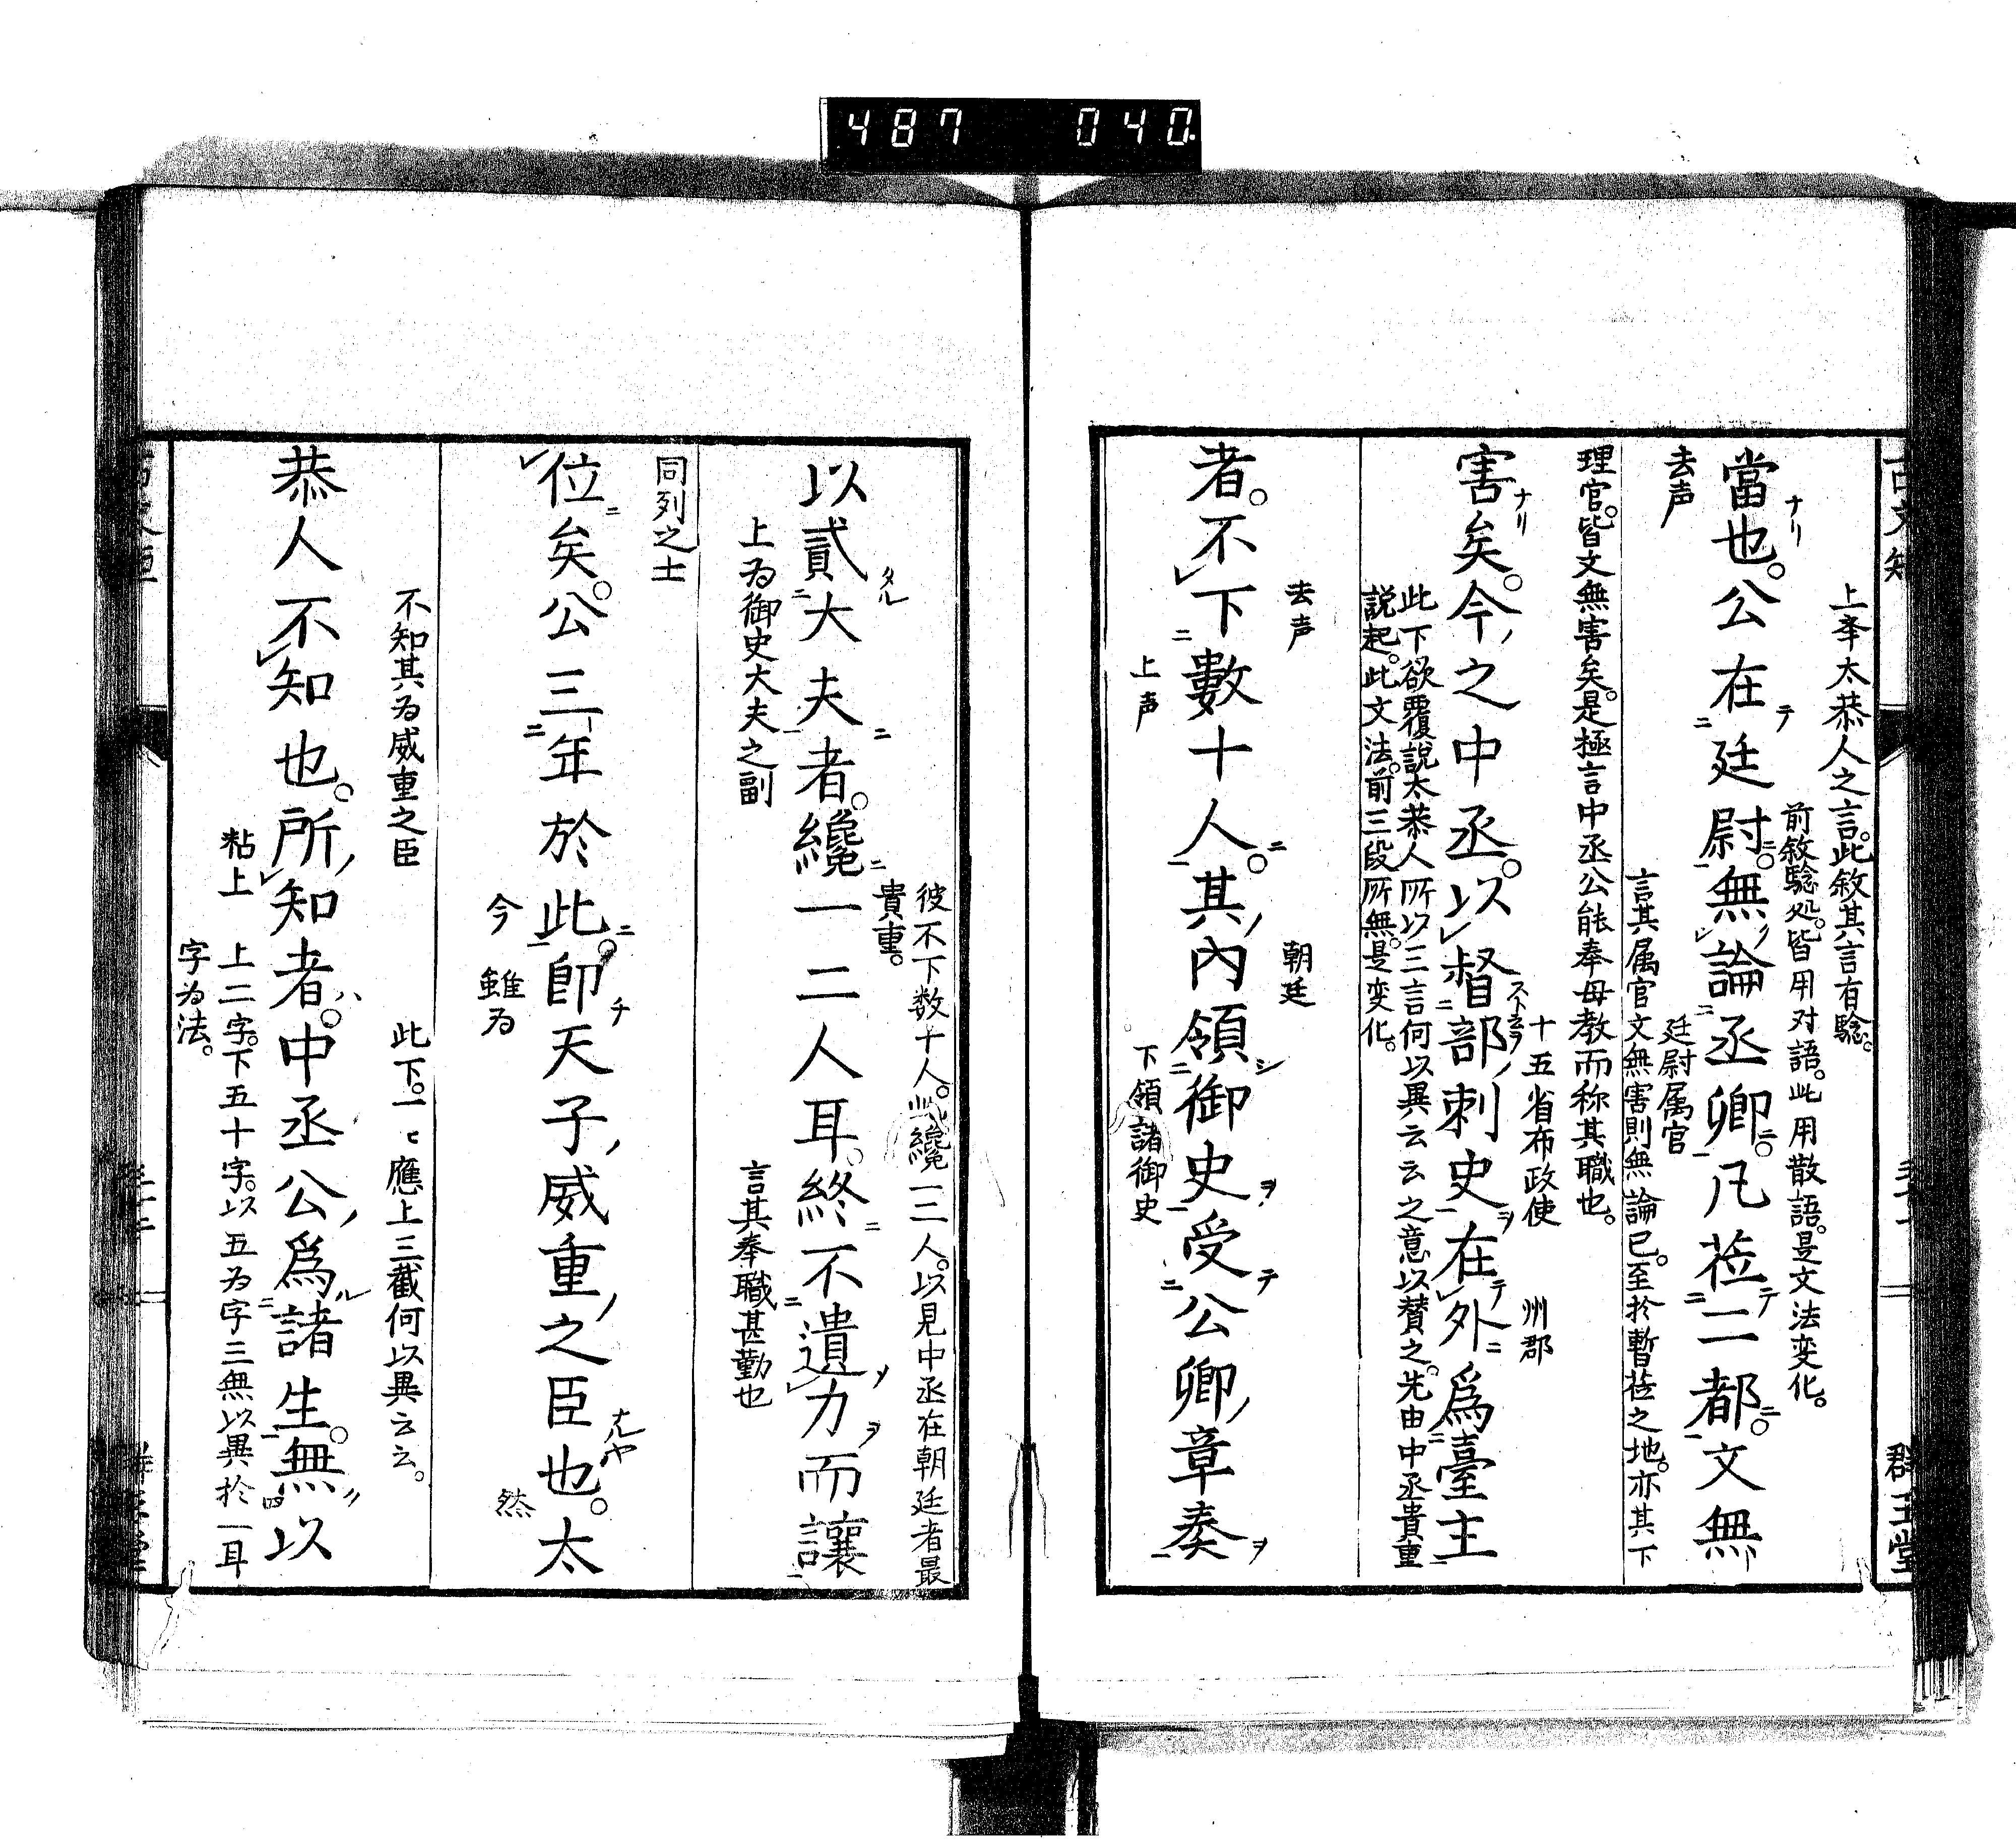 487 040.
上夆太恭人之言。此敘其言有驗。
前敘驗処。皆用对語。此用散語。是文法変化。
當也。公在廷尉。無論丞卿。凡莅二都。文無
ナリ
テ
去声
廷尉属官
言其属官文無害則無論已。至於暫莅之地。亦其下
理官。皆文無害矣。是極言中丞公能奉母教而称其職也。
十五省布政使
州郡
害矣。今之中丞。以督部刺史在外爲臺主
ナリ
此下欲覆説太恭人所以三言何以異云云之意以賛之。先由中丞貴重
説起。此文法。前三段所無。是変化。
去声
朝廷
者。不下數十人。其內領御史受公卿章奏
上声
下領諸御史
彼不下数十人。此纔一二人。以見中丞在朝廷者最
貴重。
以貳大夫者。纔一二人耳。終不遺力而讓
タル
上为御史大夫之副
言其奉職甚勤也
同列之士
位矣。公三年於此。卽天子威重之臣也。太
今
雖为
然
不知其为威重之臣
此下。一〻應上三截何以異云云。
恭人不知也。所知者。中丞公爲諸生。無以
粘上
上二字。下五十字。以五为字三無以異於一耳
字为法。